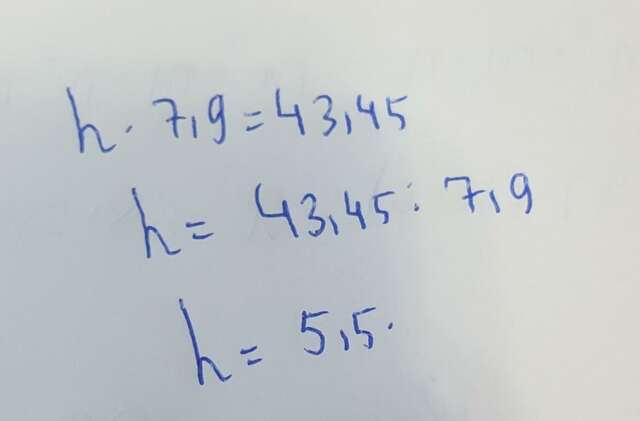 h · 7,9 = 43,45
h = 43,45 : 7,9
h = 5,5.